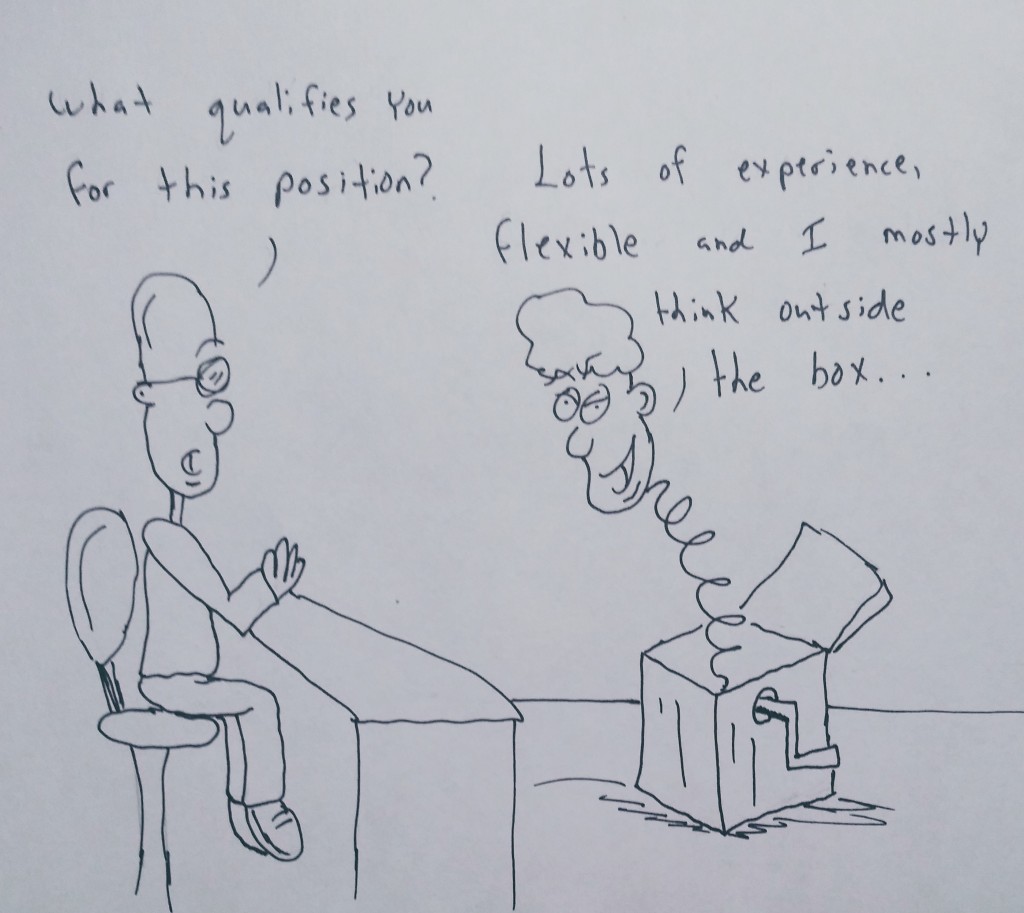 What qualifies You
for this position?
Lots of experience,
flexible and I mostly
think outside
the box...